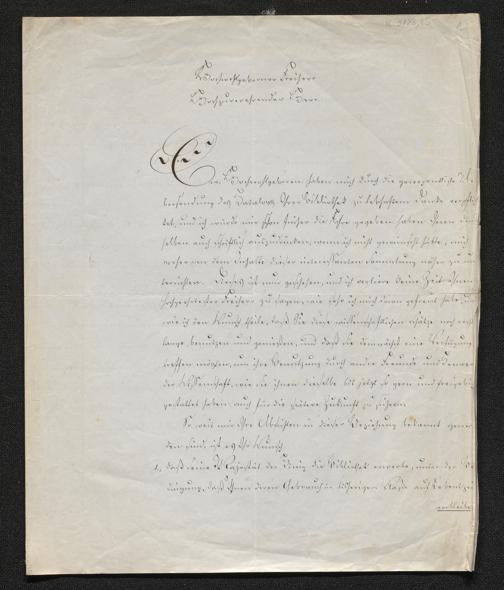 Hochwohlgeborner Freiherr
Hochzuverehrender Herr.
Ew. Hochwohlgeboren haben mich durch die geneigentliche Ue-
bersendung des Catalogs Ihrer Bibliothek zu lebhaftem Danke verpflich-
tet, und ich würde mir schon früher die Ehre gegeben haben Ihnen den-
selben auch schriftlich auszudrücken, wenn ich nicht gewünscht hätte, mich
vorher von dem Inhalte dieser interessanten Sammlung näher zu un-
terrichten. Dieses ist nun geschehen, und ich verliere keine Zeit Ihnen
hochgeehrter Freiherr zu sagen, wie sehr ich mich daran gefreut habe und
wie ich den Wunsch theile, daß Sie diese wissenschaftlichen Schätze noch recht
lange benutzen und genießen, und daß Sie demnächst eine Verfügung
treffen möchten, um ihre Benutzung durch andre Freunde und Kenner
der Wissenschaft, wie Sie ihnen dieselbe bis jetzt so gern und freigebig
gestattet haben, auch für die spätere Zukunft zu sichern.
So weit mir Ihre Absichten in dieser Beziehung bekannt gewor-
den sind, ist es Ihr Wunsch
1, daß Seine Majestät der König die Bibliothek erwerbe, unter der Be-
dingung, daß Ihnen deren Gebrauch in bisheriger Weise auf Lebenszeit
verbleibe